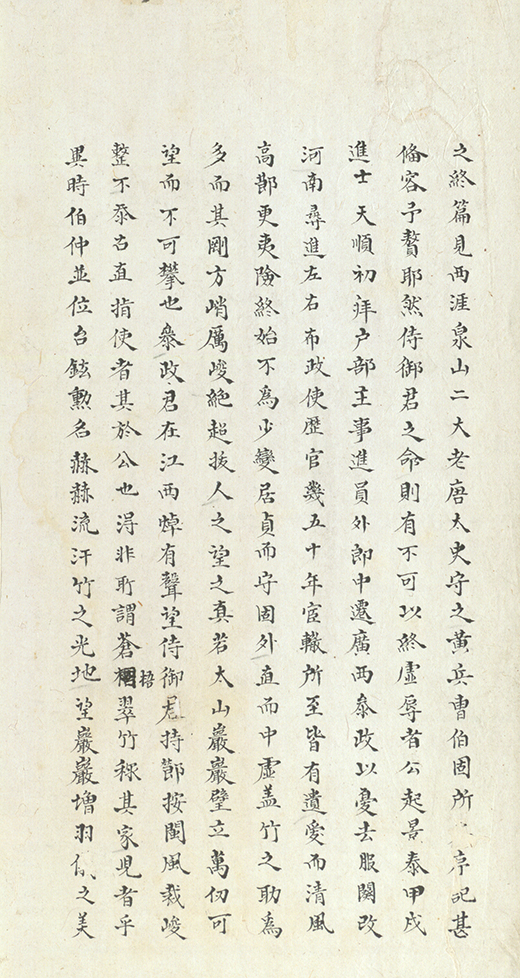 之終篇見西涯泉山二大老唐太史守之黃兵曹伯固所序記甚
俻容予贅耶然侍御君之命則有不可以終虛辱者公起景泰甲戌
進士天順初拜户部主事進員外郎中遷廣西叅政以憂去服闋改
河南尋進左右布政使歷官幾五十年宦轍所至皆有遺愛而清風
高節更夷險終始不為少變居貞而守固外直而中虛盖竹之助為
多而其剛方峭厲峻絶超拔人之望之真若太山巖巖壁立萬仞可
望而不可攀也叅政君在江西焯有聲望侍御君持節按閩風裁峻
整不忝名直指使者其於公也得非所謂蒼梧翠竹称其家児者乎
異時伯仲並位台鉉勲名赫赫流汗竹之光地望巖巖增羽儀之美